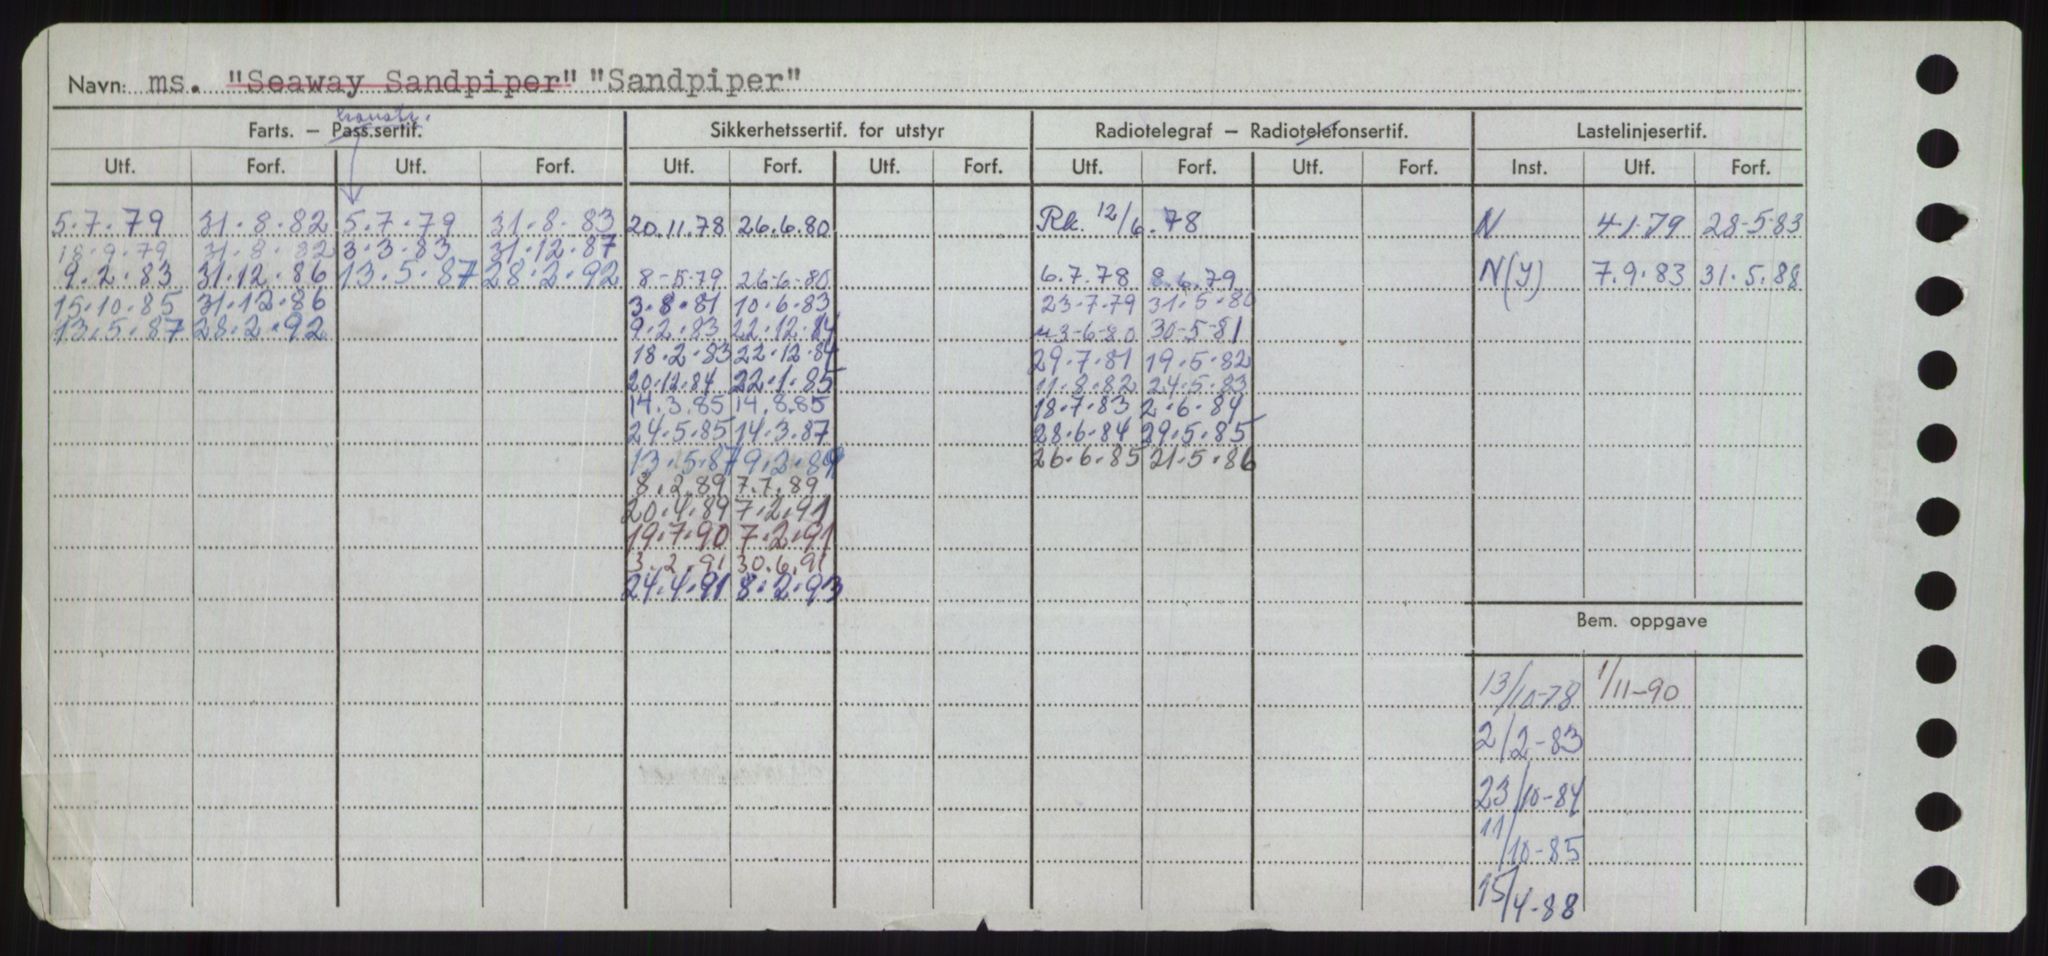 Navn: ms. "Seaway Sandpiper" "Sandpiper"
konstr.
Farts. — Pass.sertif. Sikkerhetssertif. for utstyr Radiotelegraf — Radiotelefonsertif. Lastelinjesertif.
Utf. Forf. Utf. Forf. Utf. Forf. Utf. Forf. Utf. Forf. Utf. Forf. Inst. Utf. Forf.
5.7.79 31.8.82 5.7.79 31.8.83 20.11.78 26.6.80 Rk. 12/6.78 N 4.1.79 28-5-83
18.9.79 31.8.82 3.3.83 31.12.87
9.2.83 31.12.86 13.5.87 28.2.92 8-5-79 26-6-80 6.7.78 8.6.79 N(J) 7.9.83 31.5.88
15.10.85 31.12.86 3.8.81 10.6.83 23-7-79 31-5-80
13.5.87 28.2.92 9.2.83 22.12.84 3-6-80 30-5-81
18.2.83 22.12.84 29.7.81 19.5.82
20.12.84 22.1.85 11.8.82 24.5.83
14.3.85 14.8.85 18.7.83 2.6.84
24.5.85 14.3.87 28.6.84 29.5.85
13.5.87 9.2.89 26.6.85 21.5.86
8.2.89 7.7.89
20.4.89 7.2.91
19.7.90 7.2.91
3.2.91 30.6.91
24.4.91 8.2.93
Bem. oppgave
13/10-78 1/11-90
2/2-83
23/10-84
11/10-85
15/4-88